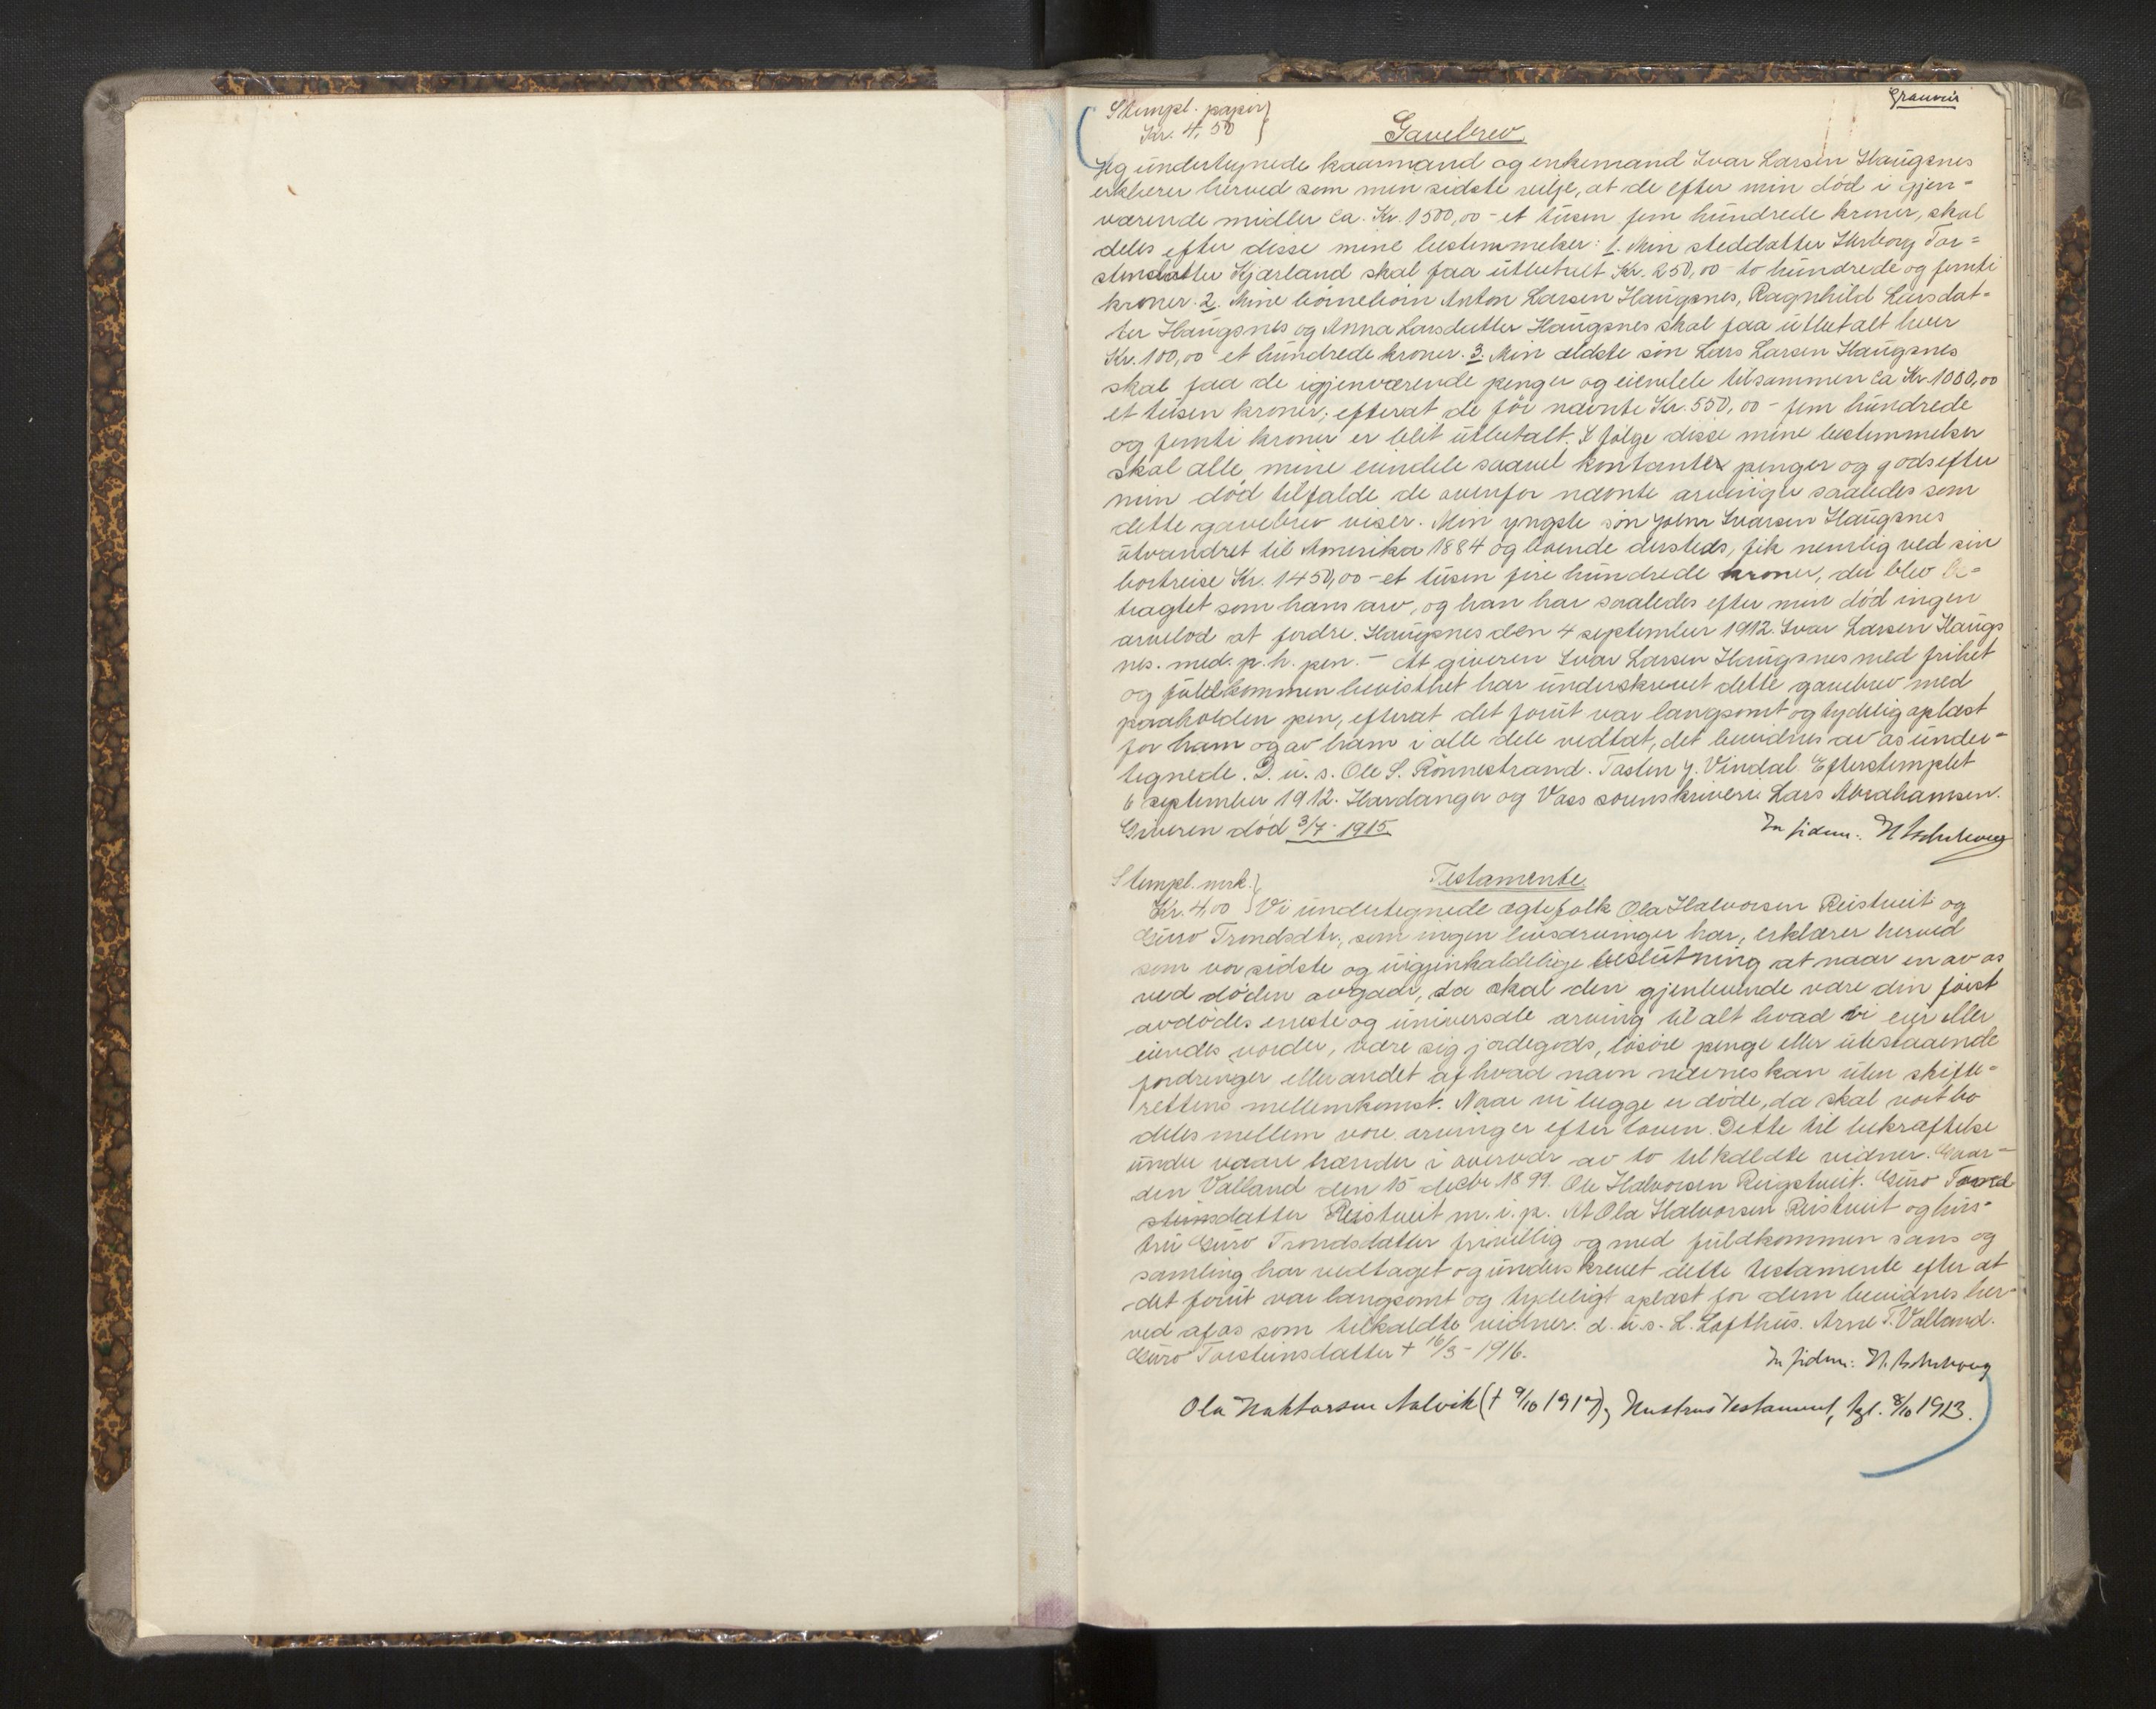 Graven
Stempl. papir }
Kr. 4,50 }
Gavebrev
Jeg undertegnede kaarmand og enkemand Ivar Larsen Haugsnes
erklærer herved som min sidste vilje, at de efter min död i gjen-
værende midler ca. Kr. 1500,00 - et tusen fem hundrede kroner, skal
deles efter disse mine bestemmelser: 1. Min steddatter Herborg Tor=
stensdatter Kjærland skal faa utbetalt Kr. 250,00 - to hundrede og femti
kroner. 2. Mine börnebörn Anton Larsen Haugsnes, Ragnhild Larsdat=
ter Haugsnes og Anna Larsdatter Haugsnes skal faa utbetalt hver
Kr. 100,00 et hundrede kroner. 3. Min ældste sön Lars Larsen Haugsnes
skal faa de igjenværende penger og eiendele tilsammen ca Kr. 1000,00
et tusen kroner; efterat de för nævnte Kr. 550,00 - fem hundrede
og femti kroner er blit utbetalt. I fölge disse mine bestemmelser
skal alle mine eiendele saavel kontanter penger og gods efter
min död tilfalde de ovenfor nævnte arvinger saaledes som
dette gavebrev viser. Min yngste sön John Ivarsen Haugsnes
utvandret til Amerika 1884 og boende dersteds, fik nemlig ved sin
bortreise Kr. 1450,00 - et tusen fire hundrede kroner, der blev be-
tragtet som hans arv, og han har saaledes efter min död ingen
arvelod at fordre. Haugsnes den 4 september 1912. Ivar Larsen Haugs
nes. med. p. h. pen. - At giveren Ivar Larsen Haugsnes med frihet
og fuldkommen bevisthet har underskrevet dette gavebrev med
paaholden pen, efterat det forut var langsomt og tydelig oplæst
for ham og av ham i alle dele vedtat, det bevidnes av os under-
tegnede. D. u. s. Ole S. Rönnestrand. Tosten J. Vindal. Efterstemplet
6 september 1912. Hardanger og Voss sorenskriveri Lars Abrahamsen.
Giveren död 3/7 - 1915.
In fidem:
Stempl. mrk. }
Testamente
Kr. 4,00 } Vi undertegnede ægtefolk Ola Halvorsen Reistveit og
Guro Trondsdtr., som ingen livsarvinger har, erklærer herved
som vor sidste og uigjenkaldelige beslutning at naar en av os
ved döden avgaar, da skal den gjenlevende være den först
avdödes eneste og universale arving til alt hvad vi eier eller
eiendes vorder, være sig jordegods, lösöre penge eller utestaaende
fordringer eller andet af hvad navn nævnes kan uten skifte-
rettens mellemkomst. Naar vi begge er döde, da skal vort bo
deles mellem vore arvinger efter loven. Dette til bekræftelse
under vaare hænder i overvær av to tilkaldte vidner. Gaar-
den Valland den 15 decbr 1899. Ole Halvorsen Reigstveit. Guro Torsd
steinsdatter Reistveit m. i. p. At Ola Halvorsen Reistveit og hus-
tru Guro Trondsdatter frivillig og med fuldkommen sans og
samling har vedtaget og underskrevet dette testamente efter at
det forut var langsomt og tydeligt oplæst for dem bevidnes her-
ved af os som tilkaldte vidner. d. u. s. L. Lofthus. Arne T. Valland.
Guro Torsteinsdatter + 16/3 - 1916.
In fidem:
Ola Haktorsen Aalvik († 9/10 1917) Hustrus Testament, tgl. 8/10 1913.